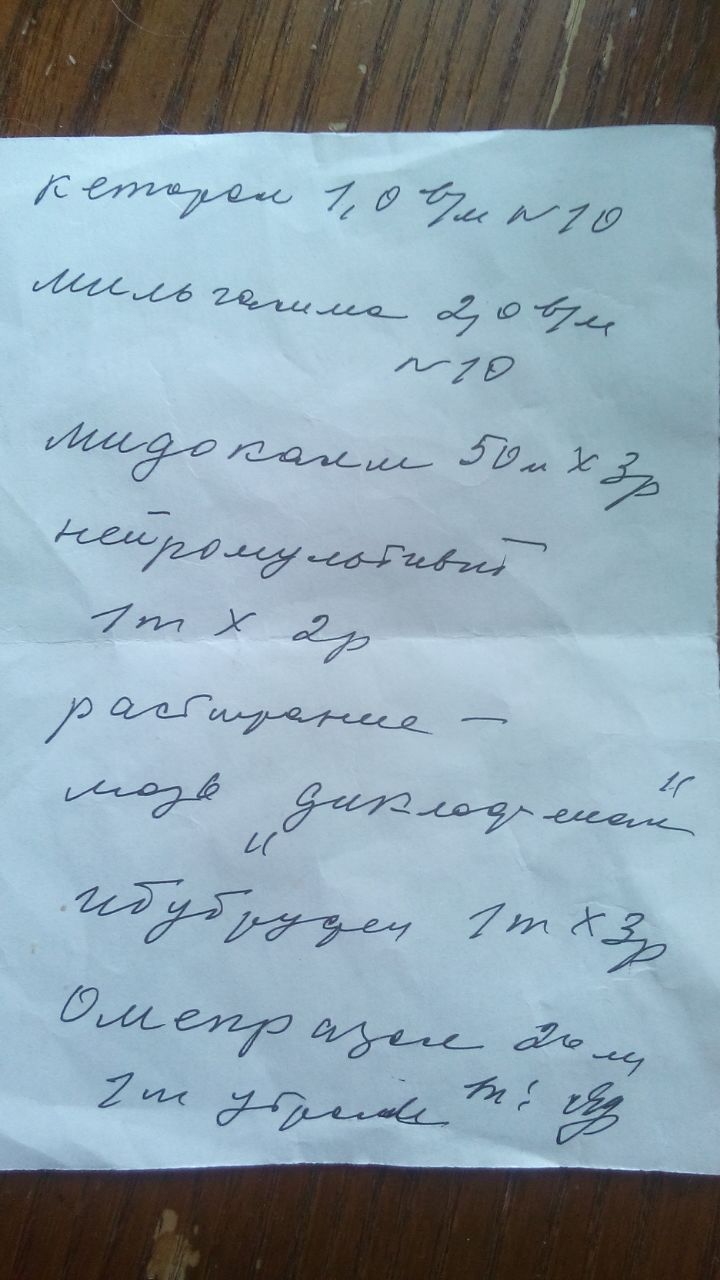 кеторол 1,0 в/м N10
мильгамма 2,0 в/м
N10
мидокалм 50 м х 3р
нейромультивит
1т х 2р
растирание —
мазь "диклофенак"
ибубруфен 1т х 3р
Омепразол 20 мг
1т утром